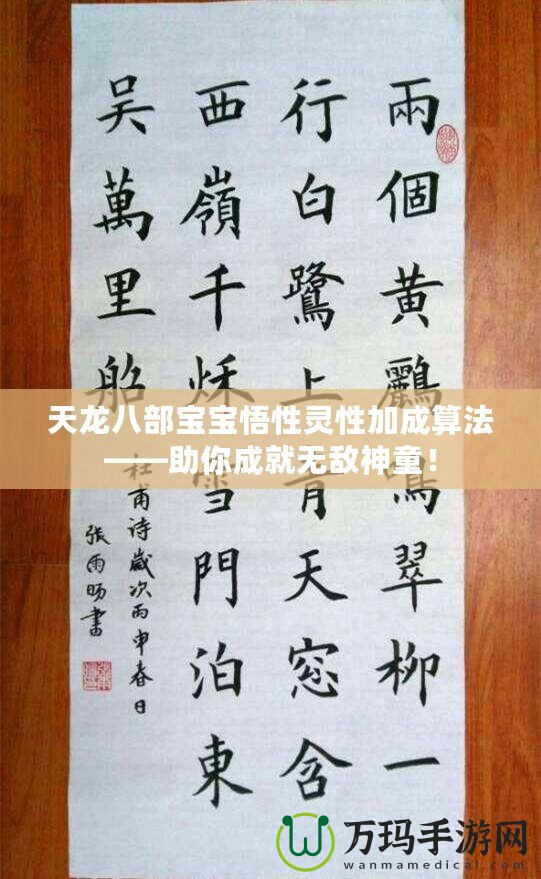 兩個黄鸝鳴翠柳一
行白鷺上青天窓含
西嶺千秋雪門泊東
吴萬里船
杜甫诗歲次丙申春日
張雨旸書
天龙八部宝宝悟性灵性加成算法
——助你成就无敌神童！
万玛手游网
www.wanmamedical.com